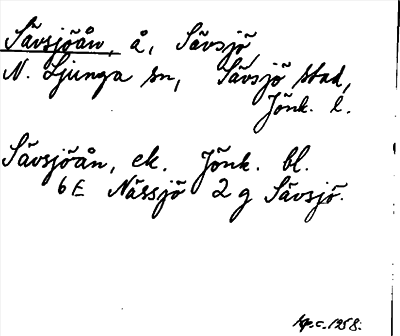 Sävsjöån, å, Sävsjö,
N. Ljunga sn, Sävsjö stad,
Jönk. l.
Sävsjöån, ek. Jönk. bl.
6E Nässjö 2g Sävsjö.
1958.